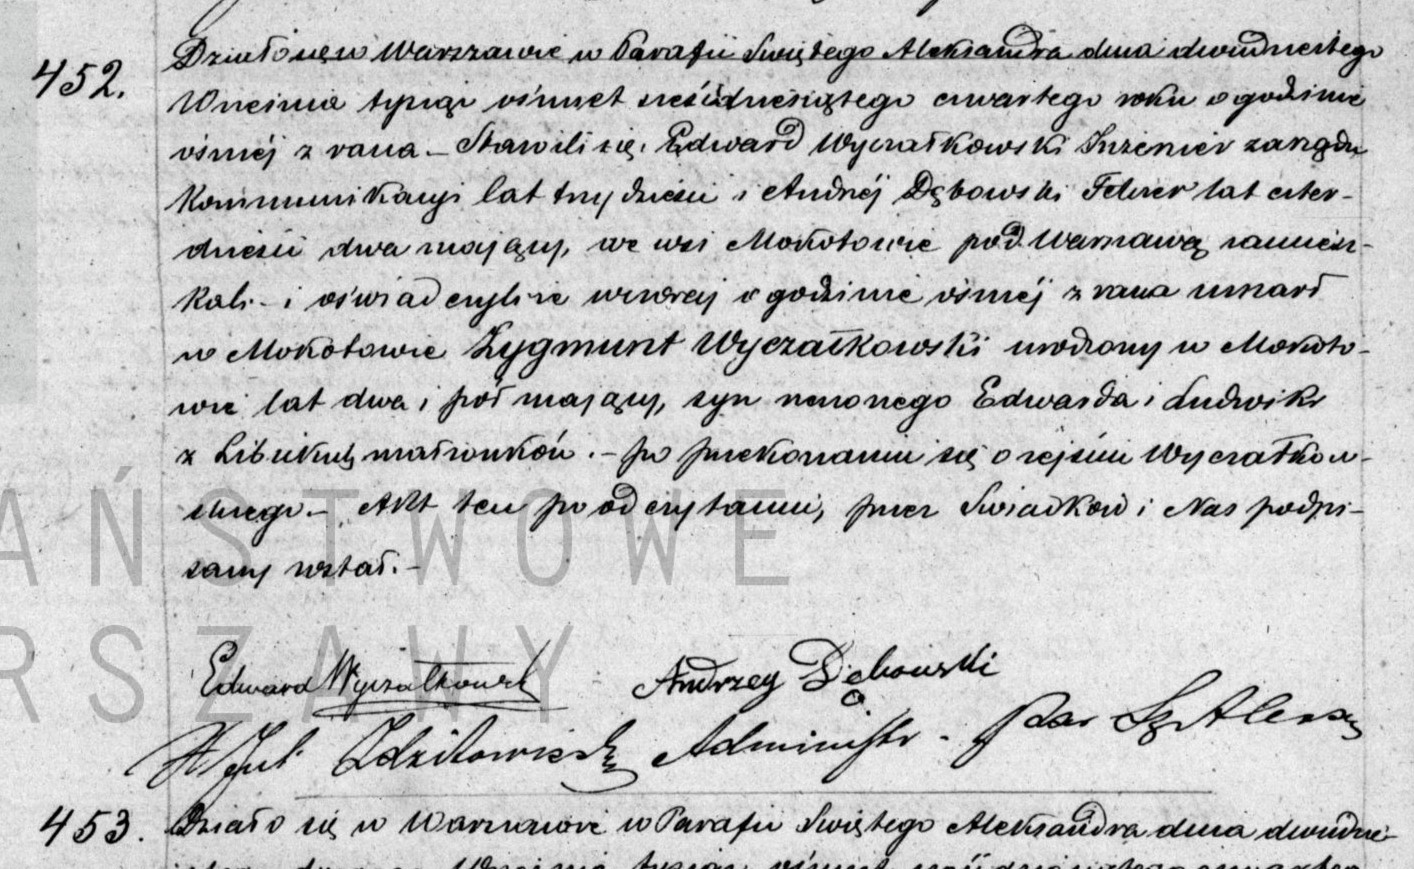 452. Działo się w Warszawie w Parafii Świętego Aleksandra dnia dwudziestego
Września tysiąc ośmset sześćdziesiątego czwartego roku o godzinie
ósmej z rana. – Stawili się, Edward Wyczałkowski Inżenier zarządu
Kommunikacyi lat trzydzieści i Andrzéj Dębowski Felczer lat czter-
dzieści dwa mający, we wsi Mokotowie pod Warszawą zamiesz-
kali – i oświadczyli iż wczoraj o godzinie ósméj z rana umarł
w Mokotowie Zygmunt Wyczałkowski urodzony w Mokoto-
wie lat dwa i pół mający, syn Edwarda i Ludwiki
z małżonków. – po przekonaniu się o zejściu Wyczałkow-
skiego. – Akt ten po odczytaniu, przez Świadków i Nas podpi-
sany został. –
Edward Wyczałkowski Andrzey Dębowski
Administr. Par Ś Alexan
453. Działo się w Warszawie w Parafii Świętego Aleksandra dnia dwudzie-
Września tysiąc ośmset sześćdziesiątego czwartego
AŃSTWOWE
RSZAWY